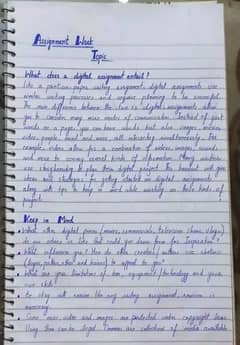 Assignment Sheet
Topic
What does a digital assignment entail?
Like a pen-on-paper writing assignment, digital assignments use
similar writing processes and require planning to be successful.
The main difference between the two is digital assignments allow
you to consider many more modes of communication. Instead of just
words on a page, you can have words but also images, movies
video, people, and more all interacting simultaneously. For
example, videos allow for a combination of videos, images, sounds,
and more to convey several kinds of information. Many writers
use to plan their digital project. This handout will give
ideas and strategies for getting started on digital assignments
along with tips to keep in mind while working on these kinds of
project.
Keep in Mind
What other digital genres (movies, commercials, television shows, vlogs)
do you admire or like that could you learn from for inspiration?
What influences you? How do other creators/authors use rhetoric
(logos, pathos, ethos and kairos) to appeal to you?
What are your limitations of time, equipment/technology and your
own skills?
So they will revise like any writing assignment, revision is
necessary.
Some music video and images are protected under copyright laws
Using them can be illegal. Commons are collections of media available